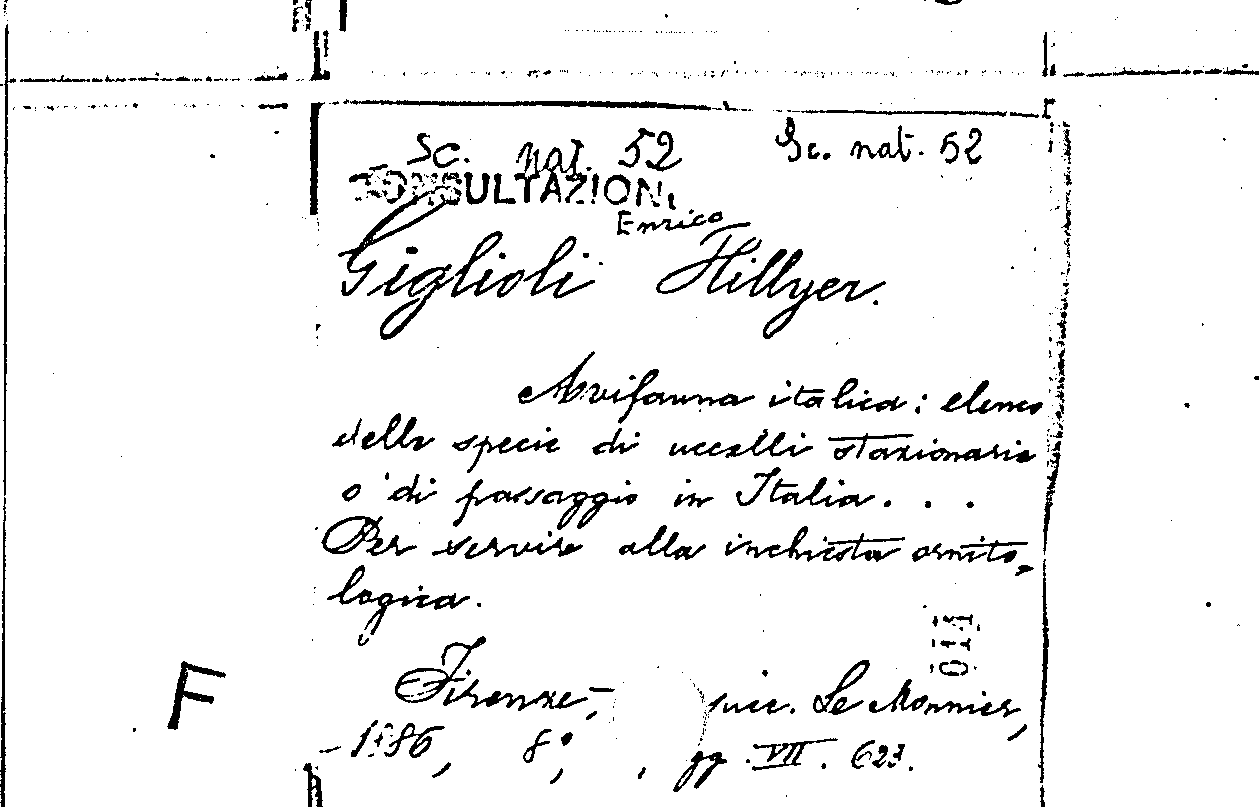 Sc. nat. 52 Sc. nat. 52
CONSULTAZIONI
Enrico
Giglioli Hillyer.
Avifauna italica: elenco
delle specie di uccelli stazionarie
o di passaggio in Italia. . .
Per servire alla inchiesta ornito-
logica.
011
F
Firenze, succ. Le Monnier,
1886, 8°, , pp. VII. 623.